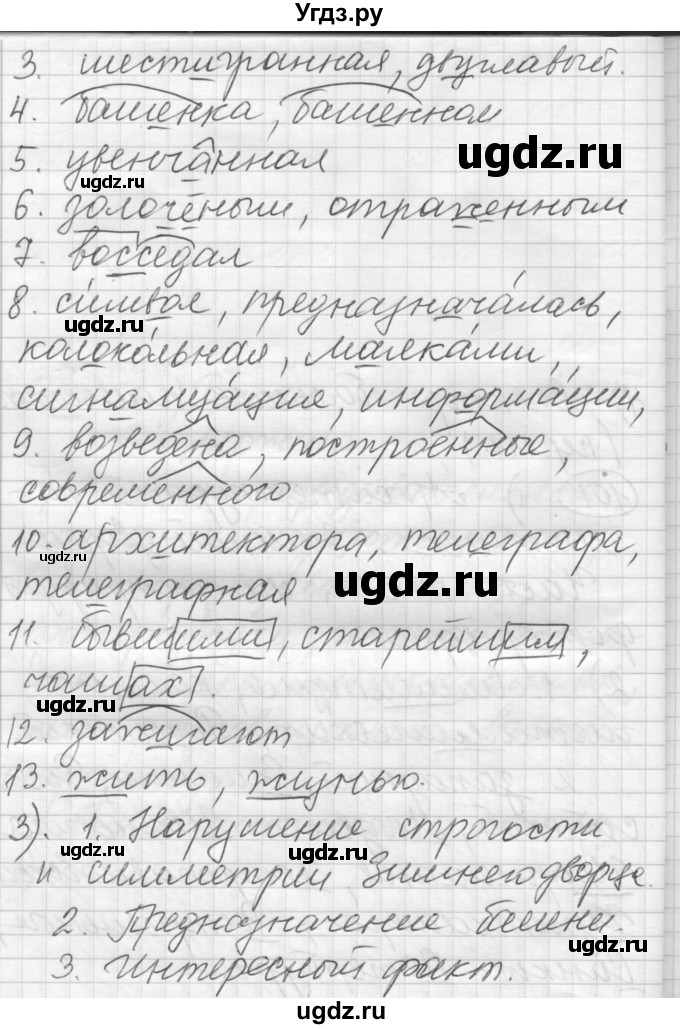 Угдз.ру
3. шестигранная, двуглавый.
4. башенка, башенном
5. увенчанная
6. золочёным, отраженным
7. восседал
8. символ, предназначалась,
колокольная, маяками,
сигнализация, информации,
9. возведена, построенные,
современного
10. архитектора, телеграфа,
телеграфная
11. бывшими, старейшим,
чашах.
12. зажигают
13. жить, жизнью.
3). 1. Нарушение строгости
и симметрии Зимнего дворца.
2. Предназначение башни.
3. Интересный факт.
ugdz.ru
ugdz.ru
ugdz.ru
ugdz.ru
ugdz.ru
ugdz.ru
ugdz.ru
ugdz.ru
ugdz.ru
ugdz.ru
ugdz.ru
ugdz.ru